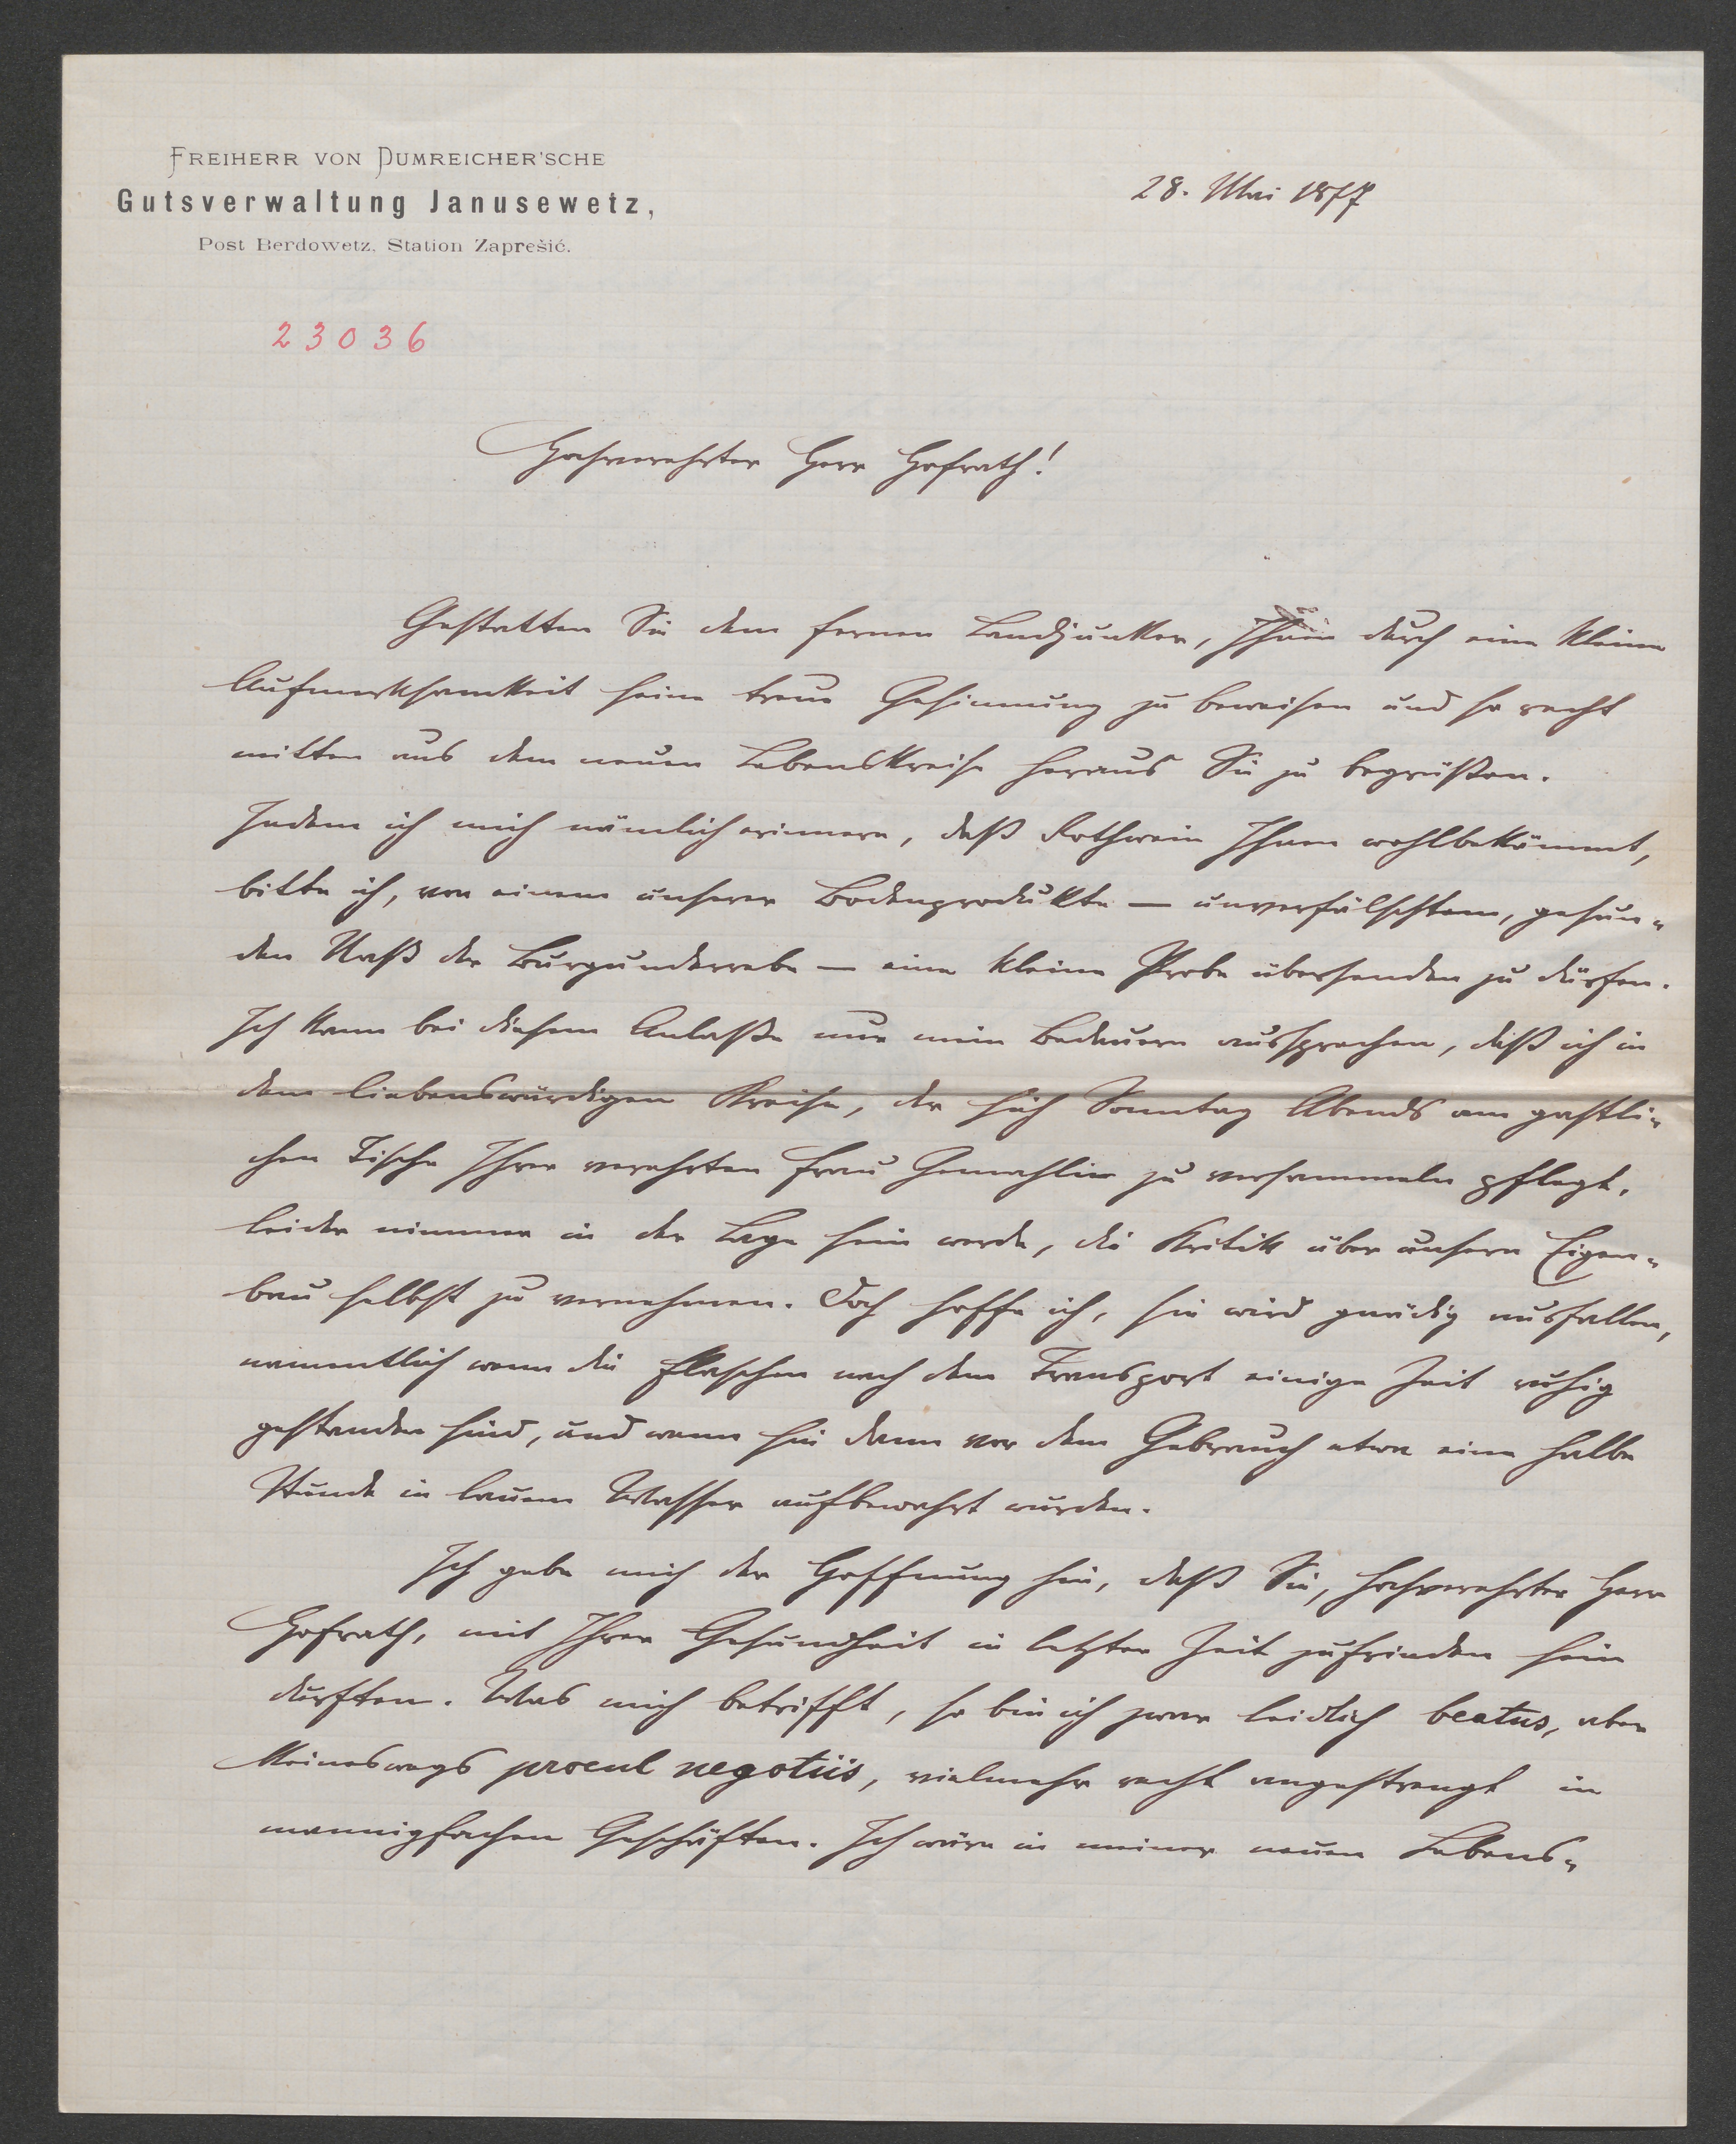 FREIHERR VON DUMREICHER'SCHE
Gutsverwaltung Janusewetz,
Post Berdowetz, Station Zaprešić.
28. Mai 1877
23036
Hochverehrter Herr Hofrath!
Gestatten Sie dem fernen Landjunker, Ihnen durch eine kleine
Aufmerksamkeit seine treue Gesinnung zu beweisen und so recht
mitten aus dem neuen Lebenskreise heraus Sie zu begrüßen.
Indem ich mich nämlich erinnere, daß Rothwein Ihnen wohlbekömmt,
bitte ich, von einem unserer Bodenprodukte — unverfälschtem, gesun-
den Naß der Burgunderrebe — eine kleine Probe übersenden zu dürfen.
Ich kann bei diesem Anlaße nur mein Bedauern aussprechen, daß ich in
dem liebenswürdigen Kreise, der sich Sonntag Abends am gastli-
chen Tische Ihrer verehrten Frau Gemahlin zu versammeln pflegt,
leider nimmer in der Lage sein werde, die Kritik über unsern Eigen-
bau selbst zu vernehmen. Doch hoffe ich, sie wird gnädig ausfallen,
namentlich wenn die Flaschen nach dem Transport einige Zeit ruhig
gestanden sind, und wenn sie dann vor dem Gebrauch etwa eine halbe
Stunde in lauem Wasser aufbewahrt wurden.
Ich gebe mich der Hoffnung hin, daß Sie, hochverehrter Herr
Hofrath, mit Ihrer Gesundheit in letzter Zeit zufrieden sein
durften. Was mich betrifft, so bin ich zwar leidlich beatus, aber
keineswegs procul negotiis, vielmehr recht angestrengt in
mannigfachen Geschäften. Ich wäre in meiner neuen Lebens-